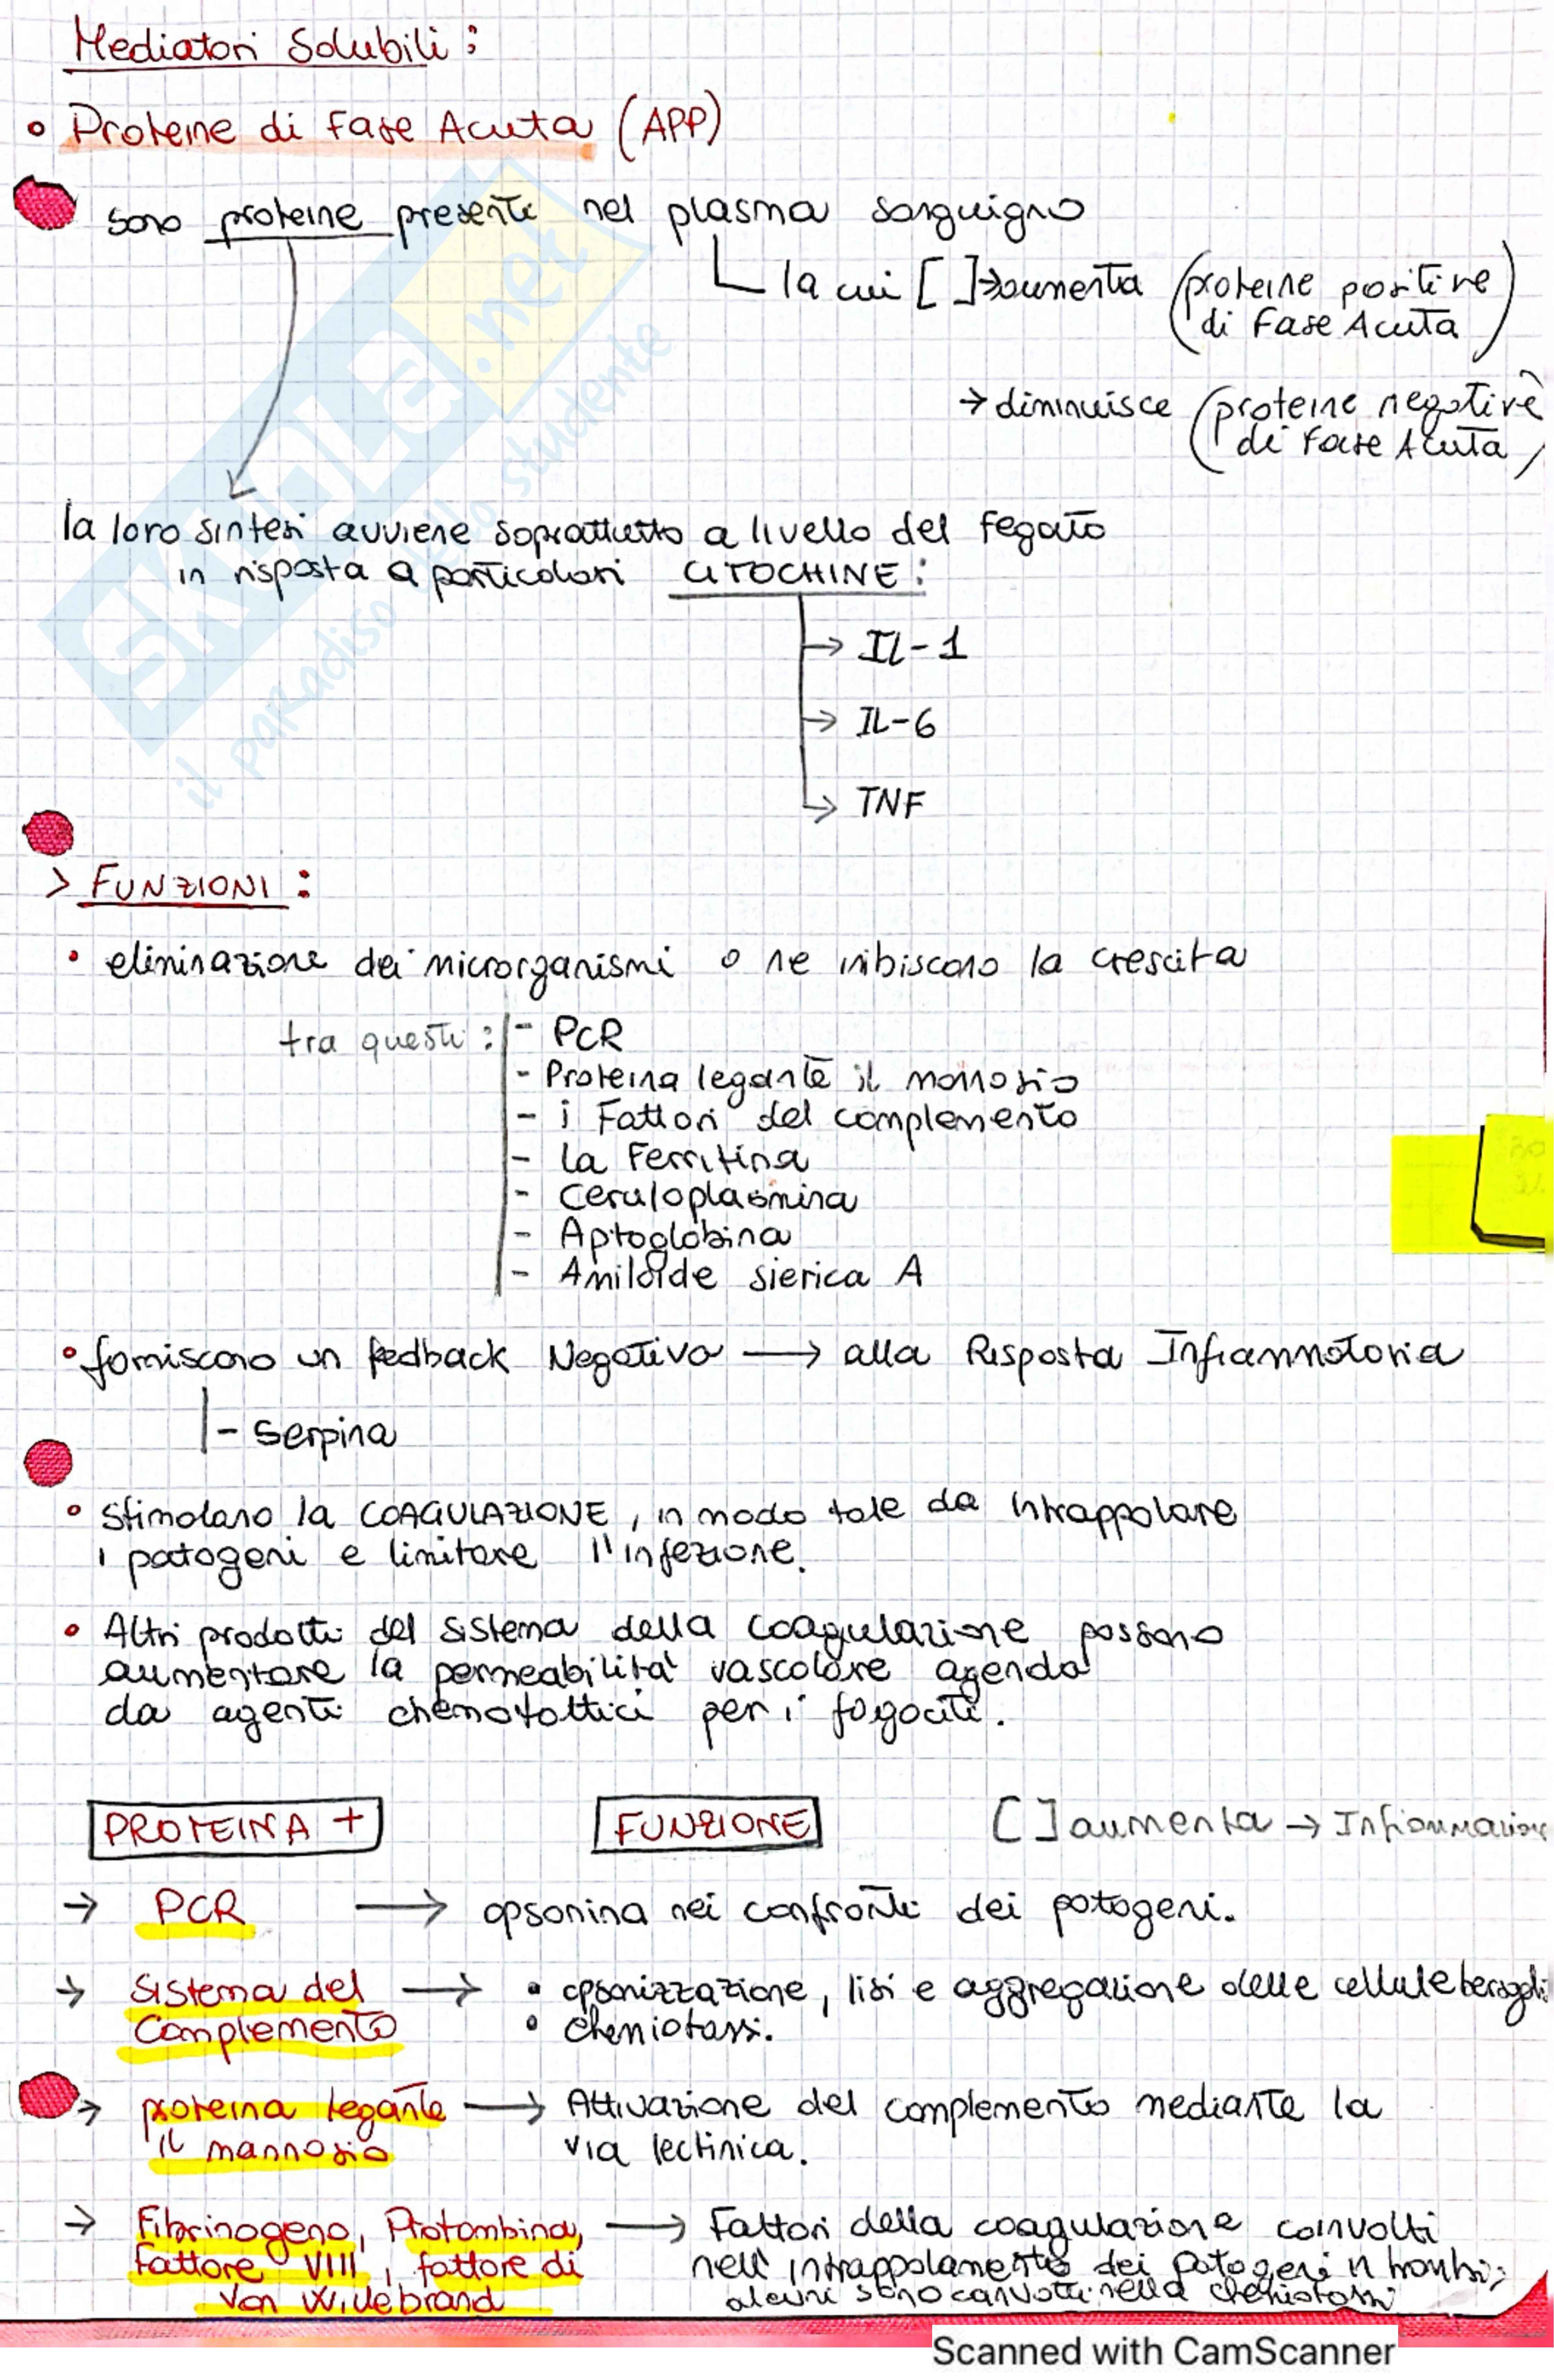 Mediatori Solubili:
• Proteine di Fase Acuta (APP)
sono proteine presenti nel plasma sanguigno
la cui [ ] → aumenta (proteine positive
di Fase Acuta)
→ diminuisce (proteine negative
di Fase Acuta)
la loro sintesi avviene soprattutto a livello del fegato
in risposta a particolari CITOCHINE:
→ IL-1
→ IL-6
→ TNF
> FUNZIONI:
• eliminazione dei microrganismi o ne inibiscono la crescita
tra questi: - PCR
- Proteina legante il mannosio
- i Fattori del complemento
- La Ferritina
- Ceruloplasmina
- Aptoglobina
- Amiloide sierica A
• forniscono un fedback Negativo → alla Risposta Infiammatoria
- Serpina
• Stimolano la COAGULAZIONE, in modo tale da intrappolare
i patogeni e limitare l'infezione.
• Altri prodotti del sistema della coagulazione possono
aumentare la permeabilità vascolare agendo
da agenti chemotattici per i fagociti.
PROTEINA + FUNZIONE [ ] aumenta → Infiammazione
→ PCR → opsonina nei confronti dei patogeni.
→ Sistema del → • opsonizzazione, lisi e aggregazione delle cellule bersagli
Complemento • chemiotassi.
→ proteina legante → Attivazione del complemento mediante la
il mannosio via lectinica.
→ Fibrinogeno, Protombina, → Fattori della coagulazione coinvolti
Fattore VIII, fattore di nell'intrappolamento dei Patogeni in trombi;
Von Willebrand alcuni sono convolti nella chemiotassi
SKUOLA.net
il paradiso dello studente
Scanned with CamScanner